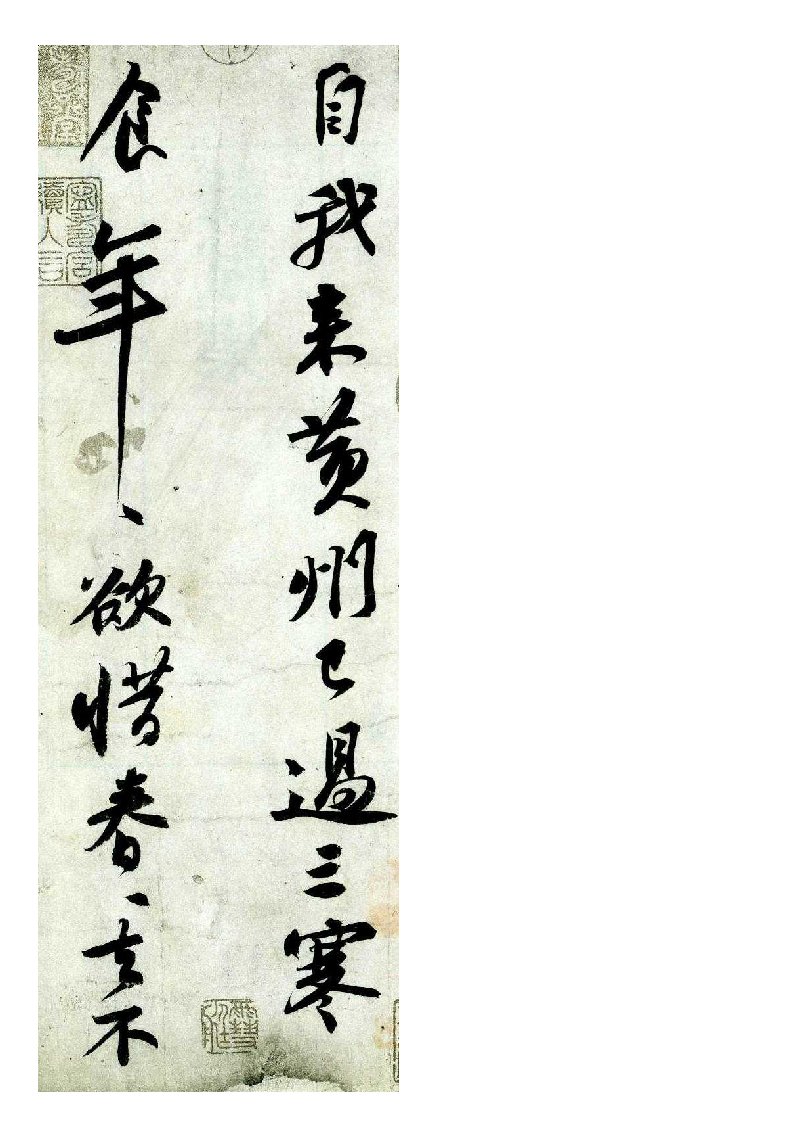 自我来黄州已過三寒
食年、欲惜春、去不